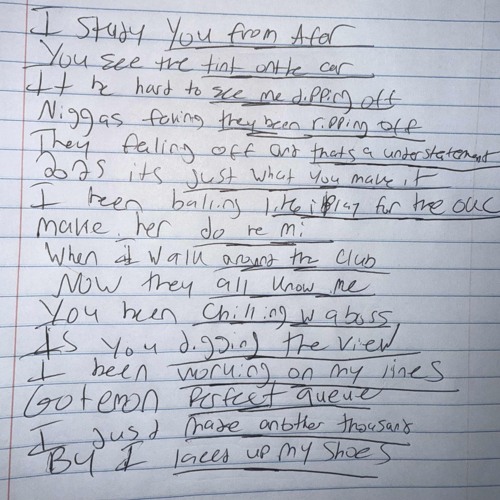 I Study You from Afar
You see the tint on the car
It be hard to see me dipping off
Niggas faking they been ripping off
They falling off and thats a understatement
2025 its just what you make it
I been balling like i play for the ouc
make her do re mi
When I walk around the club
Now they all know me
You been chilling w a boss
Is you digging the view
I been working on my lines
Got emon perfect queue
I just made another thousand
By I laces up my shoes